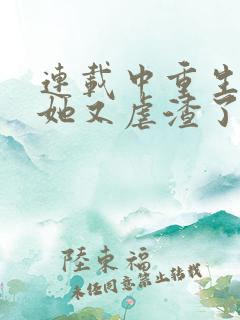 連載中重生
她又虐渣了
陸東福
未經同意禁止轉載